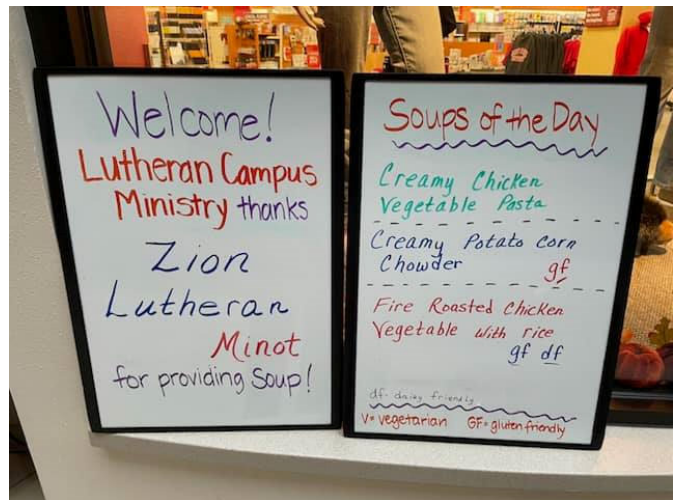 Welcome!
Lutheran Campus
Ministry thanks
Zion
Lutheran
Minot
for providing Soup!
Soups of the Day
Creamy Chicken
Vegetable Pasta
Creamy Potato Corn
Chowder gf
Fire Roasted Chicken
Vegetable with rice
gf df
df- dairy friendly
V= vegetarian GF= gluten friendly